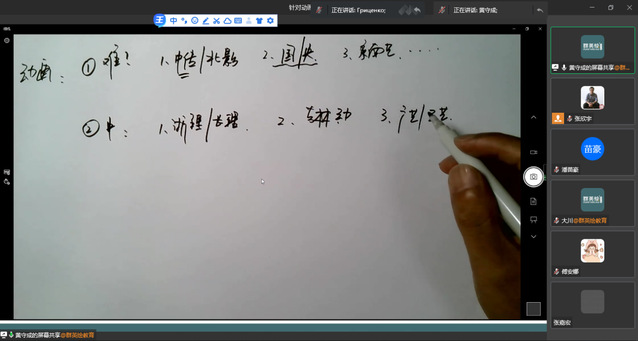 针对动
正在讲话: Гриценко;
正在讲话: 黄守成;
中
动画:
① 难! 1. 中传/北影 2. 国美. 3.
② 中: 1. 浙理/ 2. 吉林动 3. 广艺/
群英绘
黄守成的屏幕共享@群...
张欣宇
苗豪
潘苗豪
群英绘
大川@群英绘教育
傅安娜
张嘉宏
黄守成的屏幕共享@群英绘教育